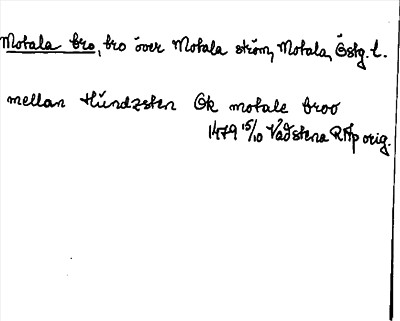 Motala bro, bro över Motala ström, Motala, Östg. l.
mellan Hündzsten Ok motale broo
1479 15/10 Vadstena RAp orig.